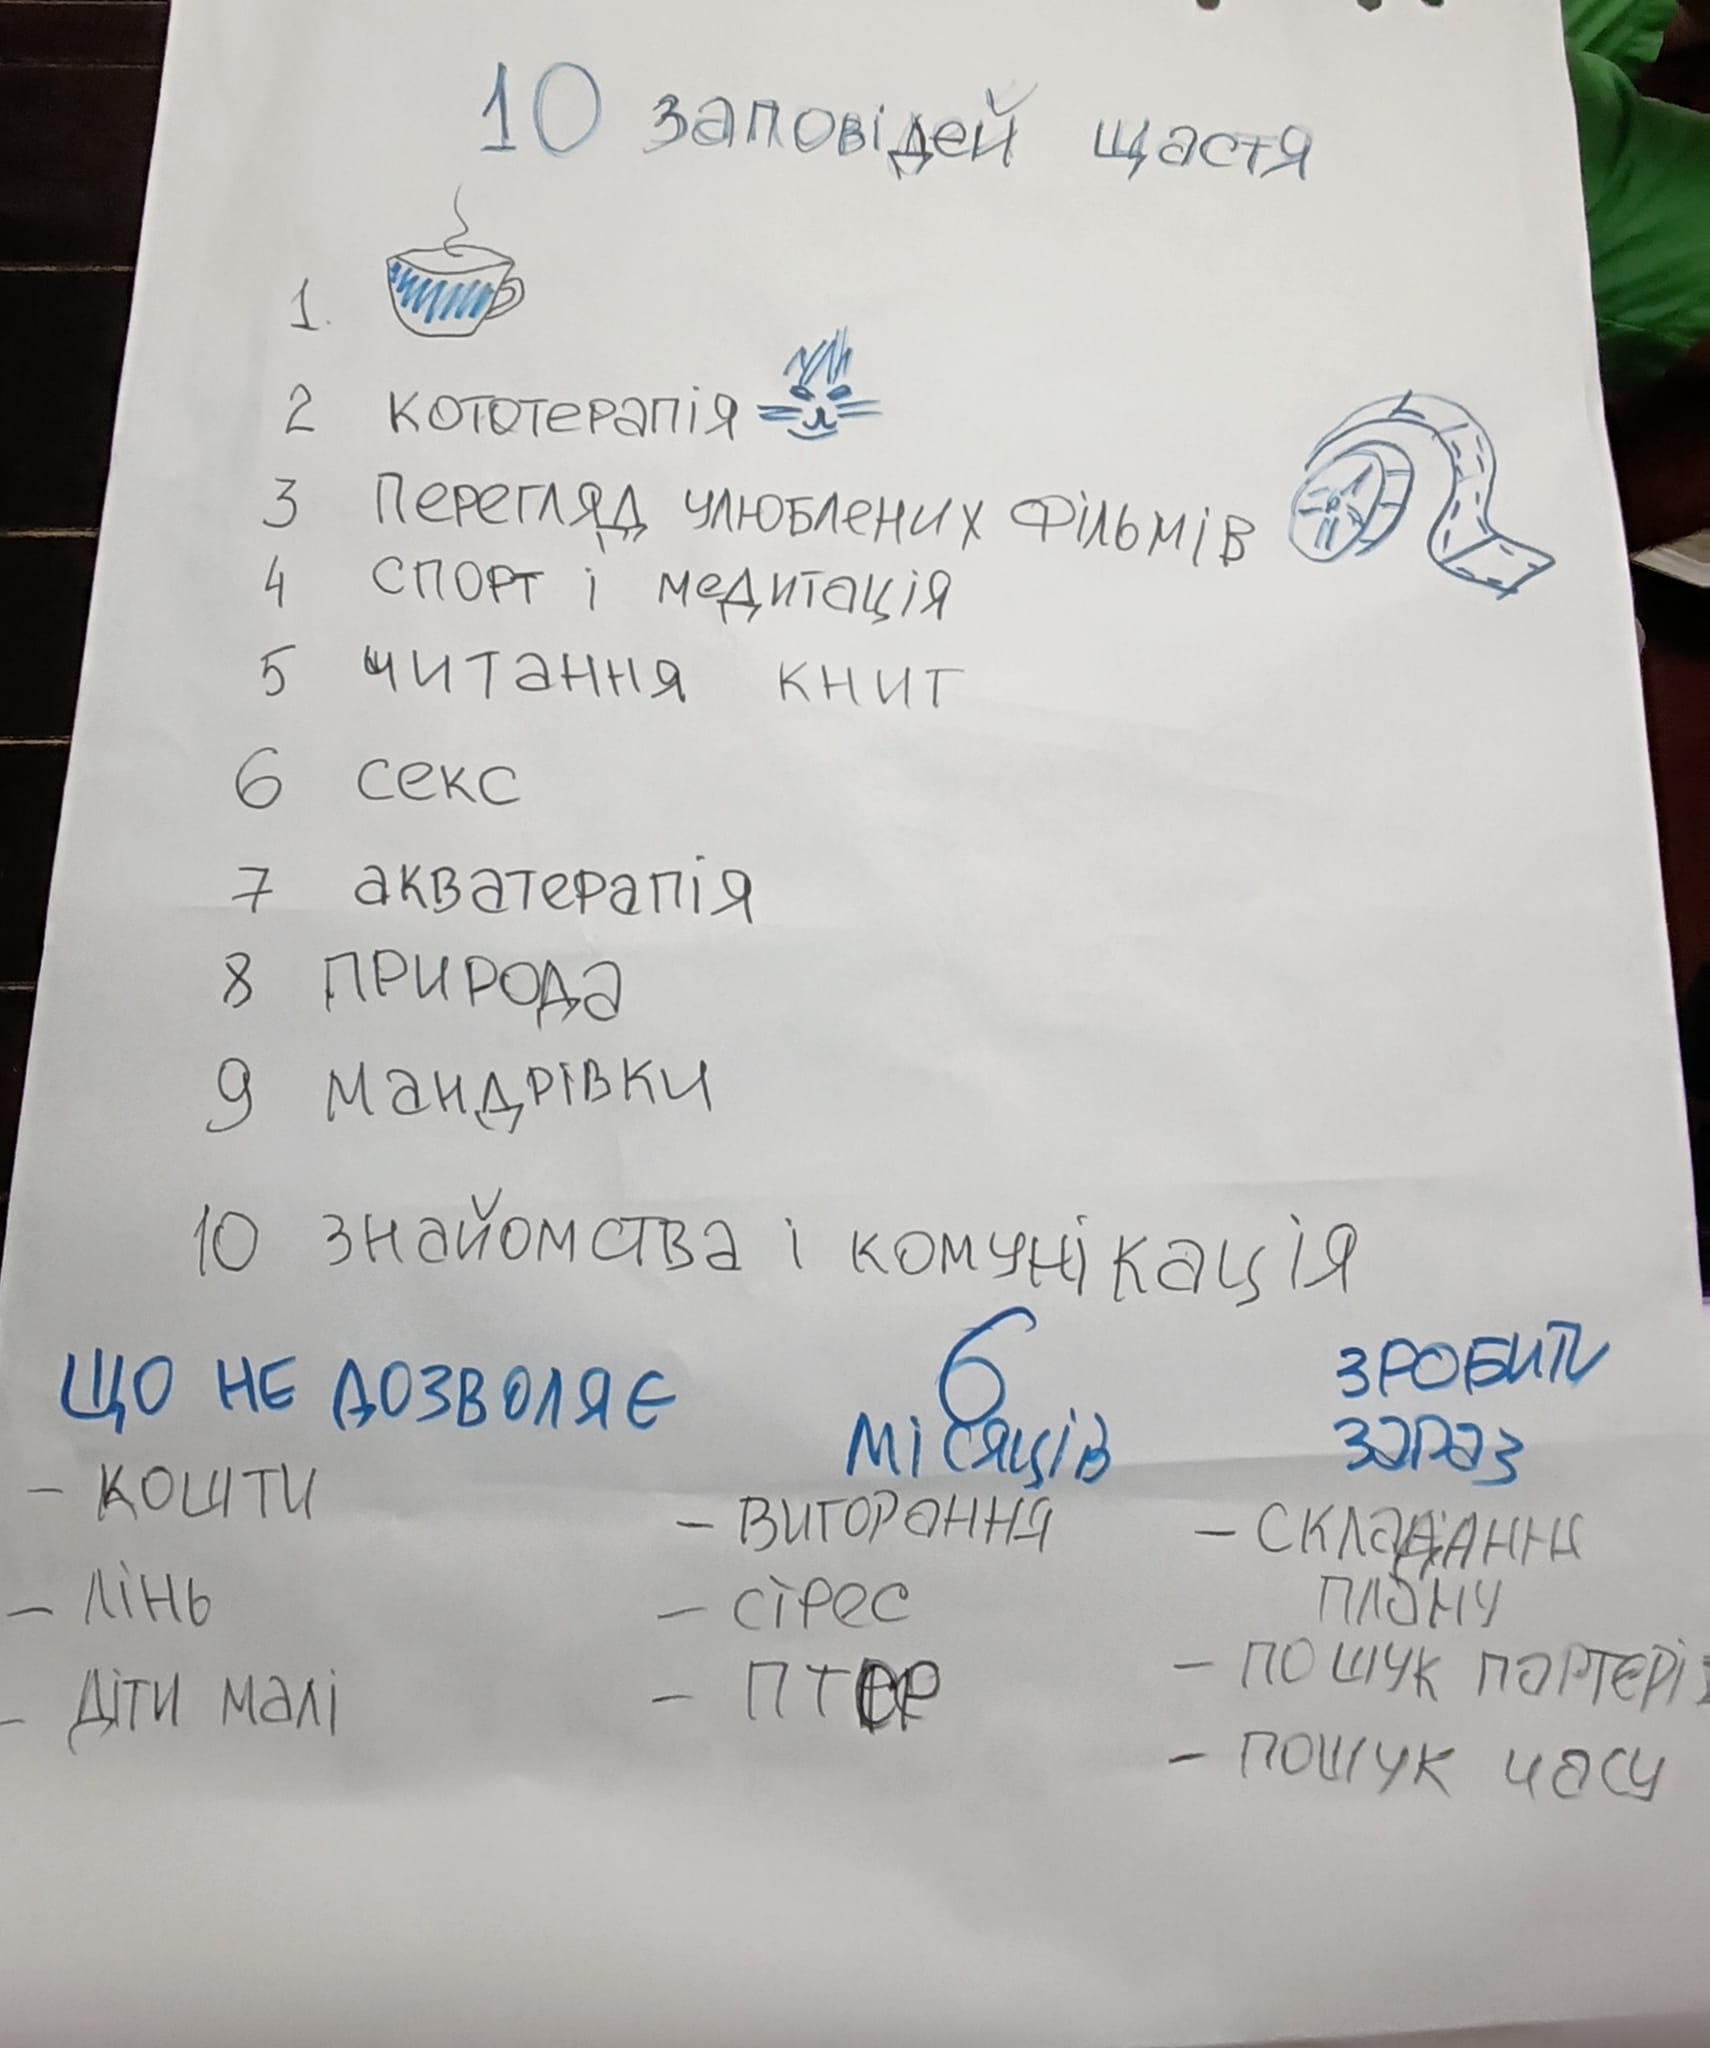 10 заповідей щастя
1.
2 кототерапія
3 перегляд улюблених фільмів
4 спорт і медитація
5 читання книг
6 секс
7 акватерапія
8 природа
9 мандрівки
10 знайомства і комунікація
ЩО НЕ ДОЗВОЛЯЄ
- кошти
- лінь
- діти малі
6
місяців
- вигорання
- стрес
- ПТСР
ЗРОБИТИ
ЗАРАЗ
- складання
плану
- пошук
- пошук часу